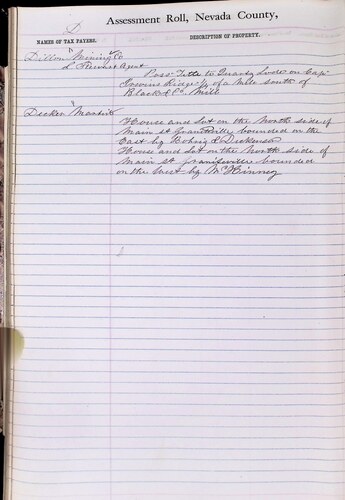 D
Assessment Roll, Nevada County,
NAMES OF TAX PAYERS.
DESCRIPTION OF PROPERTY.
Dillon Mining Co
Agent
Poss Title to Quartz Lode on
Ridge 1/2 of a Mile South of
Black & Co Mill
Decker
House and Lot on the North side of
Main st Graniteville bounded on the
East by & Dickenson
House and Lot on the North side of
Main st Graniteville bounded
on the West by McKinney